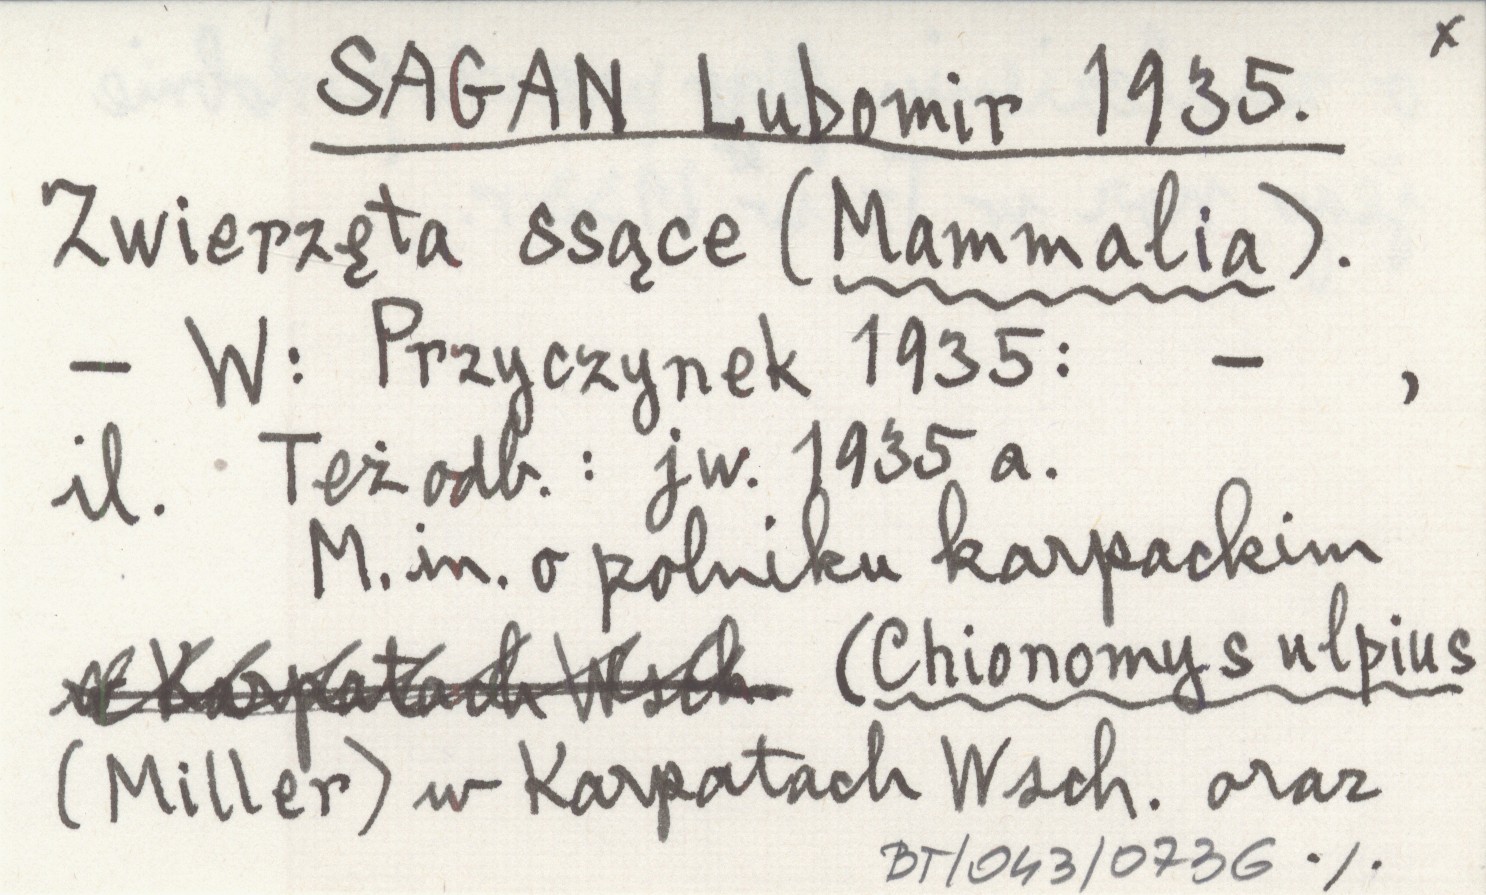 x
SAGAN Lubomir 1935.
Zwierzęta ssące (Mammalia).
– W: Przyczynek 1935: – ,
il. Też odb.: jw. 1935 a.
M. in. o polniku karpackim
w Karpatach Wsch. (Chionomys ulpius
(Miller) w Karpatach Wsch. oraz
BT/043/0736 ·/·